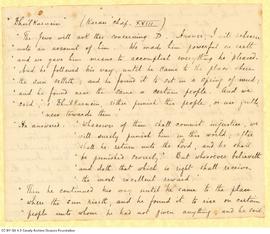 "Dhu'lkarnain" (Koran Chap. XVIII)
"The Jews will ask thee concerning D. Answer, I will rehearse
unto you an account of him. We made him powerful on earth
and we gave him means to accomplish everything he pleased.
And he followed his way, until he came to the place where
the sun setteth; and he found it to set in a spring of mud;
and he found near the same a certain people. And we
said, O Dhulkarnain, either punish the people, or use gently
ness towards them.
He answered. Whosoever of them shall commit injustice,
we will surely punish him in this world; after
shall he return unto the Lord, and he shall
be punished severely. But whosoever believeth
and doth that which is right shall receive
the most excellent reward.
Then he continued his way until he came to the place
where the sun riseth, and he found it to rise on certain
people unto whom he had not given anything and he said